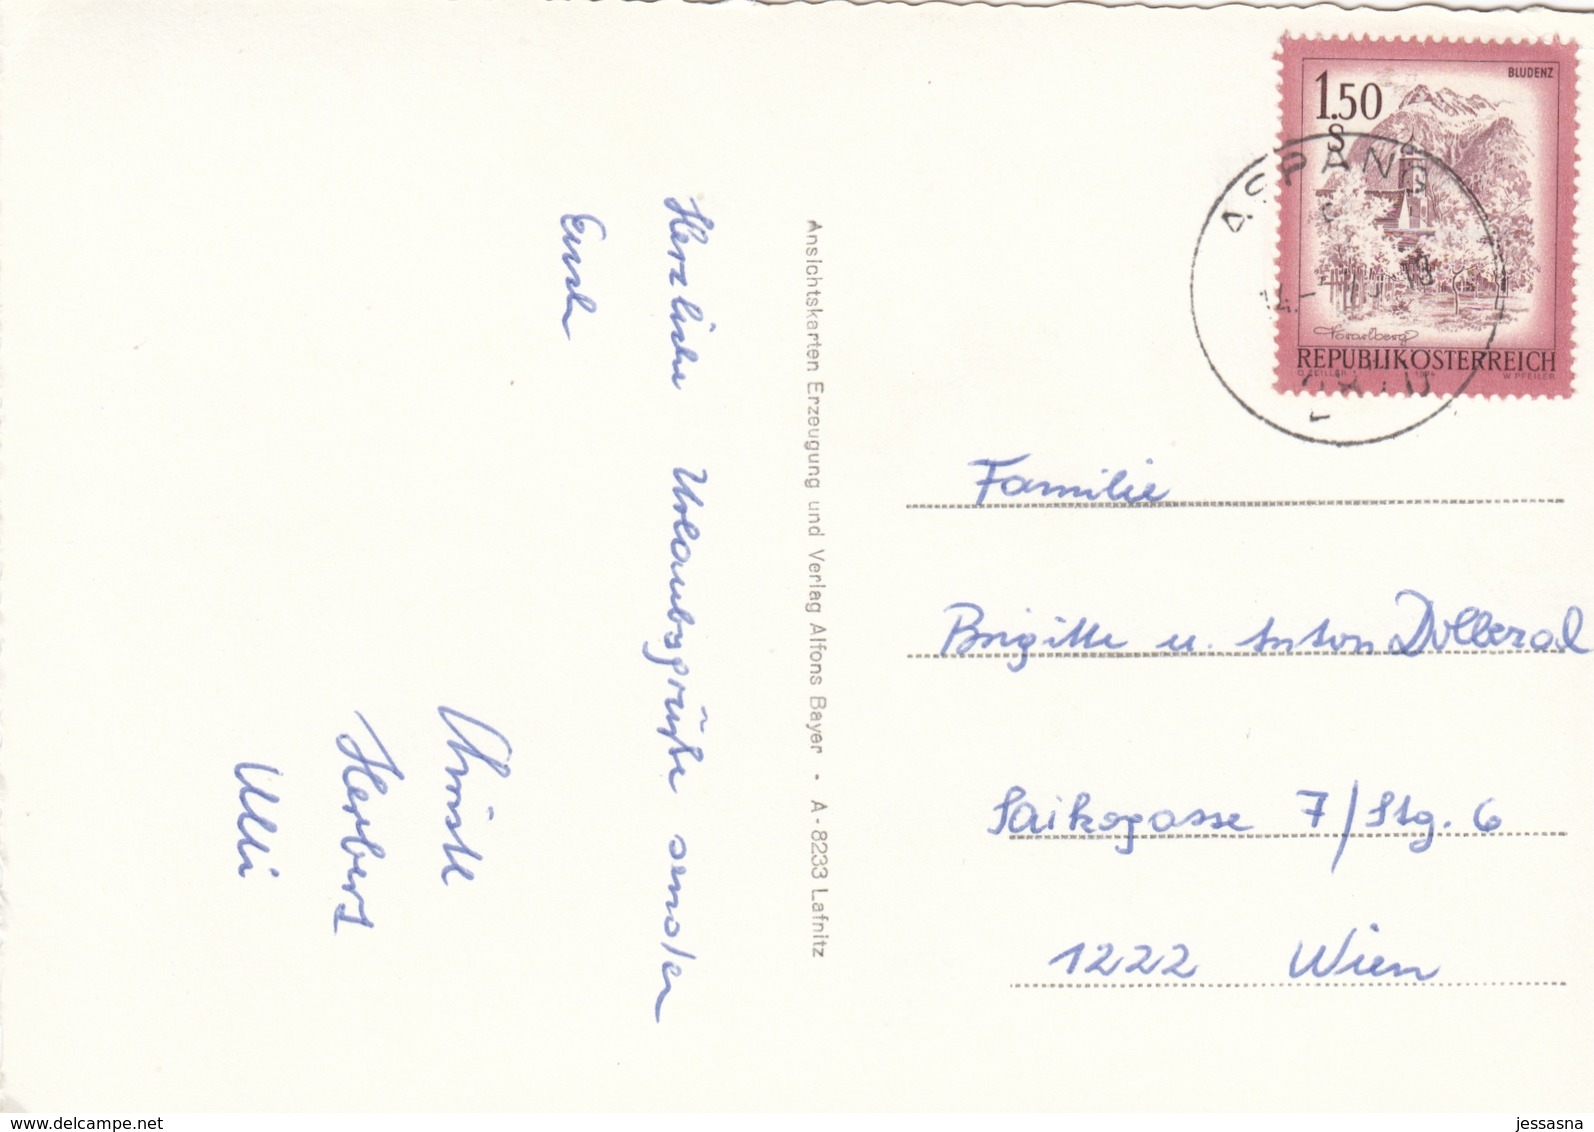 Herzliche Urlaubsgrüße senden
Euch
Christl
Herbert
Ulli
Ansichtskarten Erzeugung und Verlag Alfons Bayer · A-8233 Lafnitz
BLUDENZ
1.50
S
Vorarlberg
REPUBLIK ÖSTERREICH
O. ZEILLER 1974 W. PFEILER
ASPANG
Familie
Brigitte u. Anton Dolleral
Saikogasse 7/Stg. 6
1222 Wien
www.delcampe.net
jessasna